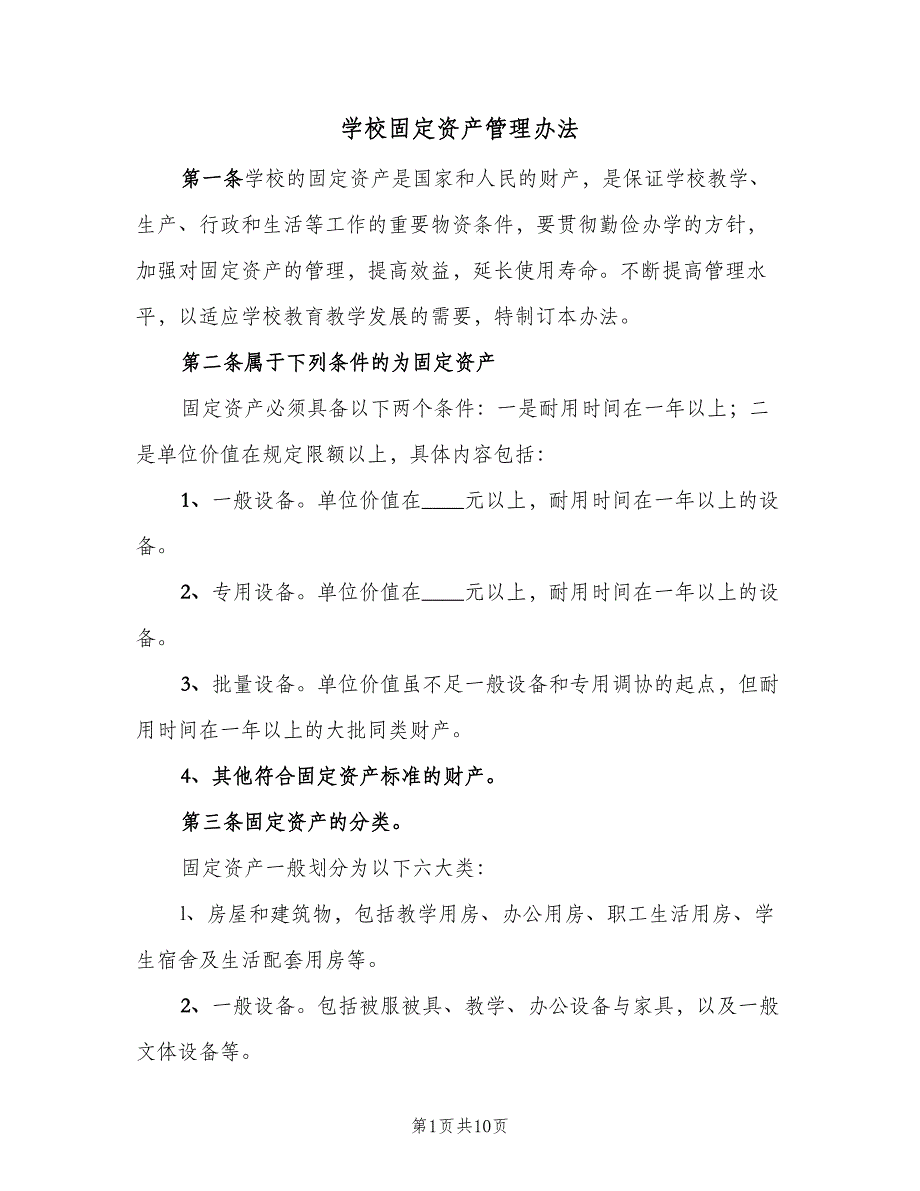 学校固定资产管理办法
第一条学校的固定资产是国家和人民的财产，是保证学校教学、
生产、行政和生活等工作的重要物资条件，要贯彻勤俭办学的方针，
加强对固定资产的管理，提高效益，延长使用寿命。不断提高管理水
平，以适应学校教育教学发展的需要，特制订本办法。
第二条属于下列条件的为固定资产
固定资产必须具备以下两个条件：一是耐用时间在一年以上；二
是单位价值在规定限额以上，具体内容包括：
1、一般设备。单位价值在____元以上，耐用时间在一年以上的设
备。
2、专用设备。单位价值在____元以上，耐用时间在一年以上的设
备。
3、批量设备。单位价值虽不足一般设备和专用调协的起点，但耐
用时间在一年以上的大批同类财产。
4、其他符合固定资产标准的财产。
第三条固定资产的分类。
固定资产一般划分为以下六大类：
l、房屋和建筑物，包括教学用房、办公用房、职工生活用房、学
生宿舍及生活配套用房等。
2、一般设备。包括被服被具、教学、办公设备与家具，以及一般
文体设备等。
第1页共10页